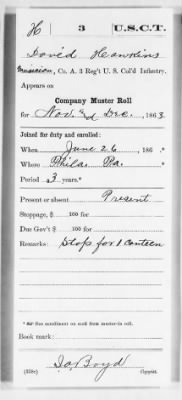 H 3 U.S.C.T.
David Hawkins
Musician, Co. A, 3 Reg't U. S. Col'd Infantry.
Appears on
Company Muster Roll
for Nov. & Dec., 1863
Joined for duty and enrolled:
When June 26, 186 .*
Where Phila. Pa.
Period 3 years.*
Present or absent Present
Stoppage, $ 100 for
Due Gov't $ 100 for
Remarks: Stop for 1 Canteen
*See enrollment on card from muster-in roll.
Book mark:
Boyd
(358c) Copyist.